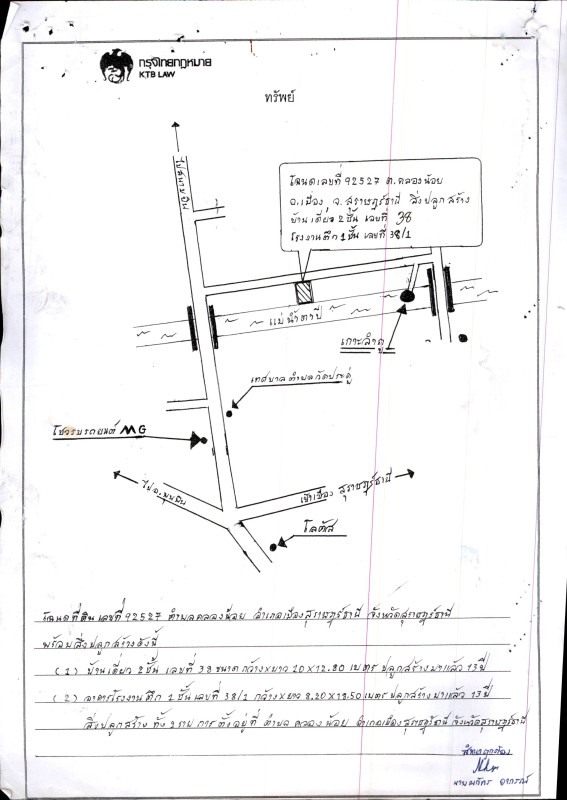 กรุงไทยกฎหมาย
KTB LAW
ทรัพย์
ไปสนามบิน
โฉนดเลขที่ 92527 ต.คลองน้อย
อ.เมือง จ.สุราษฎร์ธานี สิ่งปลูกสร้าง
บ้านเดี่ยว 2 ชั้น เลขที่ 38
โรงงานตึก 1 ชั้น เลขที่ 38/1
แม่น้ำตาปี
เกาะลำพู
เทศบาลตำบลวัดประดู่
โชว์รูมรถยนต์ MG
ไป อ.พุนพิน
เข้าเมือง สุราษฎร์ธานี
โลตัส
โฉนดที่ดินเลขที่ 92527 ตำบลคลองน้อย อำเภอเมืองสุราษฎร์ธานี จังหวัดสุราษฎร์ธานี
พร้อมสิ่งปลูกสร้างดังนี้
(1) บ้านเดี่ยว 2 ชั้น เลขที่ 38 ขนาดกว้าง×ยาว 10×12.80 เมตร ปลูกสร้างมาแล้ว 13 ปี
(2) อาคารโรงงานตึก 1 ชั้น เลขที่ 38/1 กว้าง×ยาว 8.20×18.50 เมตร ปลูกสร้างมาแล้ว 13 ปี
สิ่งปลูกสร้าง ทั้ง 2 รายการ ตั้งอยู่ที่ ตำบล คลองน้อย อำเภอเมืองสุราษฎร์ธานี จังหวัดสุราษฎร์ธานี